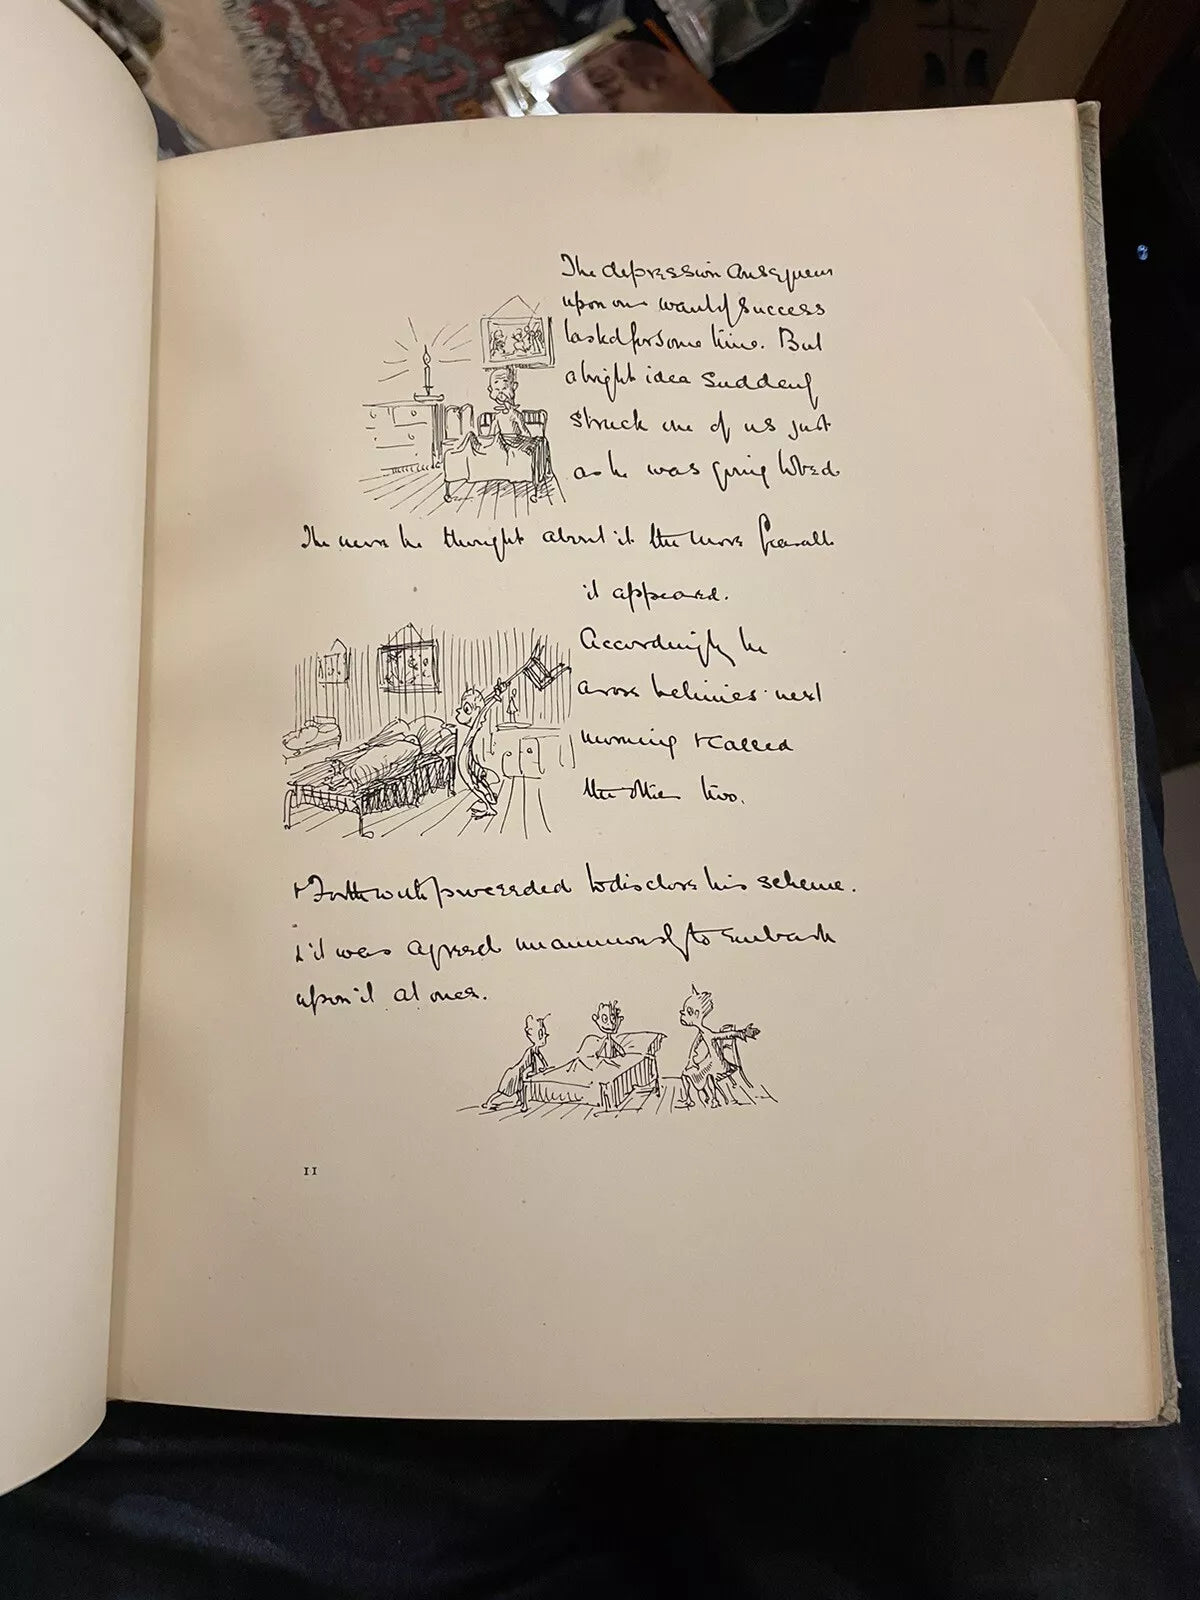 The depression consequent
upon our want of success
lasted for some time. But
a bright idea suddenly
struck one of us just
as he was going to bed
The more he thought about it the more feasible
it appeared.
Accordingly he
arose betimes next
morning & called
the other two.
& Forthwith proceeded to disclose his scheme.
& it was agreed unanimously to embark
upon it at once.
11